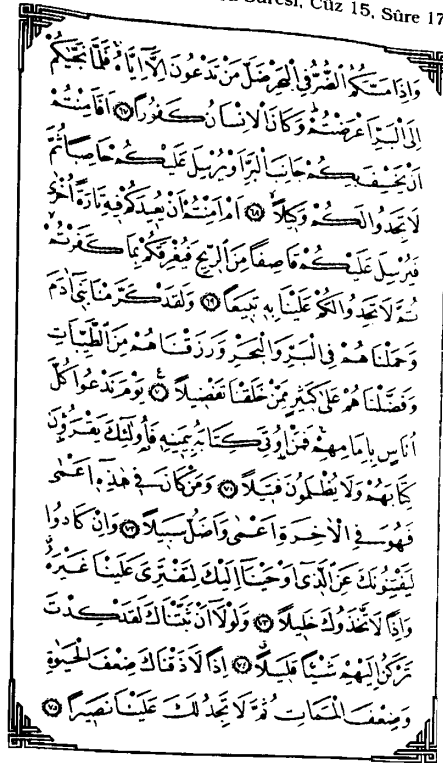 Sûresi, Cüz 15, Sûre 17
وَاِذَا مَسَّكُمُ الضُّرُّ فِي الْبَحْرِ ضَلَّ مَنْ تَدْعُونَ اِلَّٓا اِيَّاهُ فَلَمَّا نَجّٰيكُمْ
اِلَى الْبَرِّ اَعْرَضْتُمْ وَكَانَ الْاِنْسَانُ كَفُورًا ﴿٦٧﴾ اَفَاَمِنْتُمْ
اَنْ يَخْسِفَ بِكُمْ جَانِبَ الْبَرِّ اَوْ يُرْسِلَ عَلَيْكُمْ حَاصِبًا ثُمَّ
لَا تَجِدُوا لَكُمْ وَكِيلًا ﴿٦٨﴾ اَمْ اَمِنْتُمْ اَنْ يُعِيدَكُمْ فِيهِ تَارَةً اُخْرٰى
فَيُرْسِلَ عَلَيْكُمْ قَاصِفًا مِنَ الرِّيحِ فَيُغْرِقَكُمْ بِمَا كَفَرْتُمْ
ثُمَّ لَا تَجِدُوا لَكُمْ عَلَيْنَا بِهِ تَبِيعًا ﴿٦٩﴾ وَلَقَدْ كَرَّمْنَا بَنِٓي اٰدَمَ
وَحَمَلْنَاهُمْ فِي الْبَرِّ وَالْبَحْرِ وَرَزَقْنَاهُمْ مِنَ الطَّيِّبَاتِ
وَفَضَّلْنَاهُمْ عَلٰى كَثِيرٍ مِمَّنْ خَلَقْنَا تَفْضِيلًا ﴿٧٠﴾ يَوْمَ نَدْعُوا كُلَّ
اُنَاسٍ بِاِمَامِهِمْ فَمَنْ اُو۫تِيَ كِتَابَهُ بِيَمِينِهِ فَاُو۬لٰٓئِكَ يَقْرَؤُ۫نَ
كِتَابَهُمْ وَلَا يُظْلَمُونَ فَتِيلًا ﴿٧١﴾ وَمَنْ كَانَ فِي هٰذِهِ اَعْمٰى
فَهُوَ فِي الْاٰخِرَةِ اَعْمٰى وَاَضَلُّ سَبِيلًا ﴿٧٢﴾ وَاِنْ كَادُوا
لَيَفْتِنُونَكَ عَنِ الَّذِٓي اَوْحَيْنَٓا اِلَيْكَ لِتَفْتَرِيَ عَلَيْنَا غَيْرَهُ
وَاِذًا لَاتَّخَذُوكَ خَلِيلًا ﴿٧٣﴾ وَلَوْلَٓا اَنْ ثَبَّتْنَاكَ لَقَدْ كِدْتَ
تَرْكَنُ اِلَيْهِمْ شَيْـًٔا قَلِيلًا ﴿٧٤﴾ اِذًا لَاَذَقْنَاكَ ضِعْفَ الْحَيٰوةِ
وَضِعْفَ الْمَمَاتِ ثُمَّ لَا تَجِدُ لَكَ عَلَيْنَا نَصِيرًا ﴿٧٥﴾